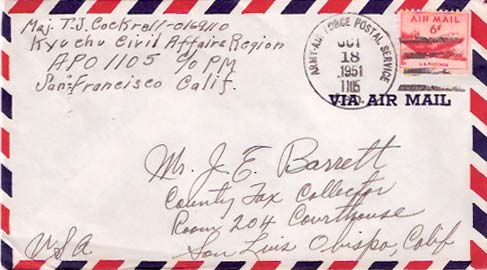 Maj. T.J. Cockrell-0169110
Kyuchu Civil Affairs Region
APO 1105 % PM
San Francisco Calif.
ARMY-AIR FORCE POSTAL SERVICE
OCT
18
1951
1105
AIR MAIL
6¢
U.S. POSTAGE
VIA AIR MAIL
Mr. J. E. Barrett
County Tax Collector
Room 204 Courthouse
San Luis Obispo, Calif
USA